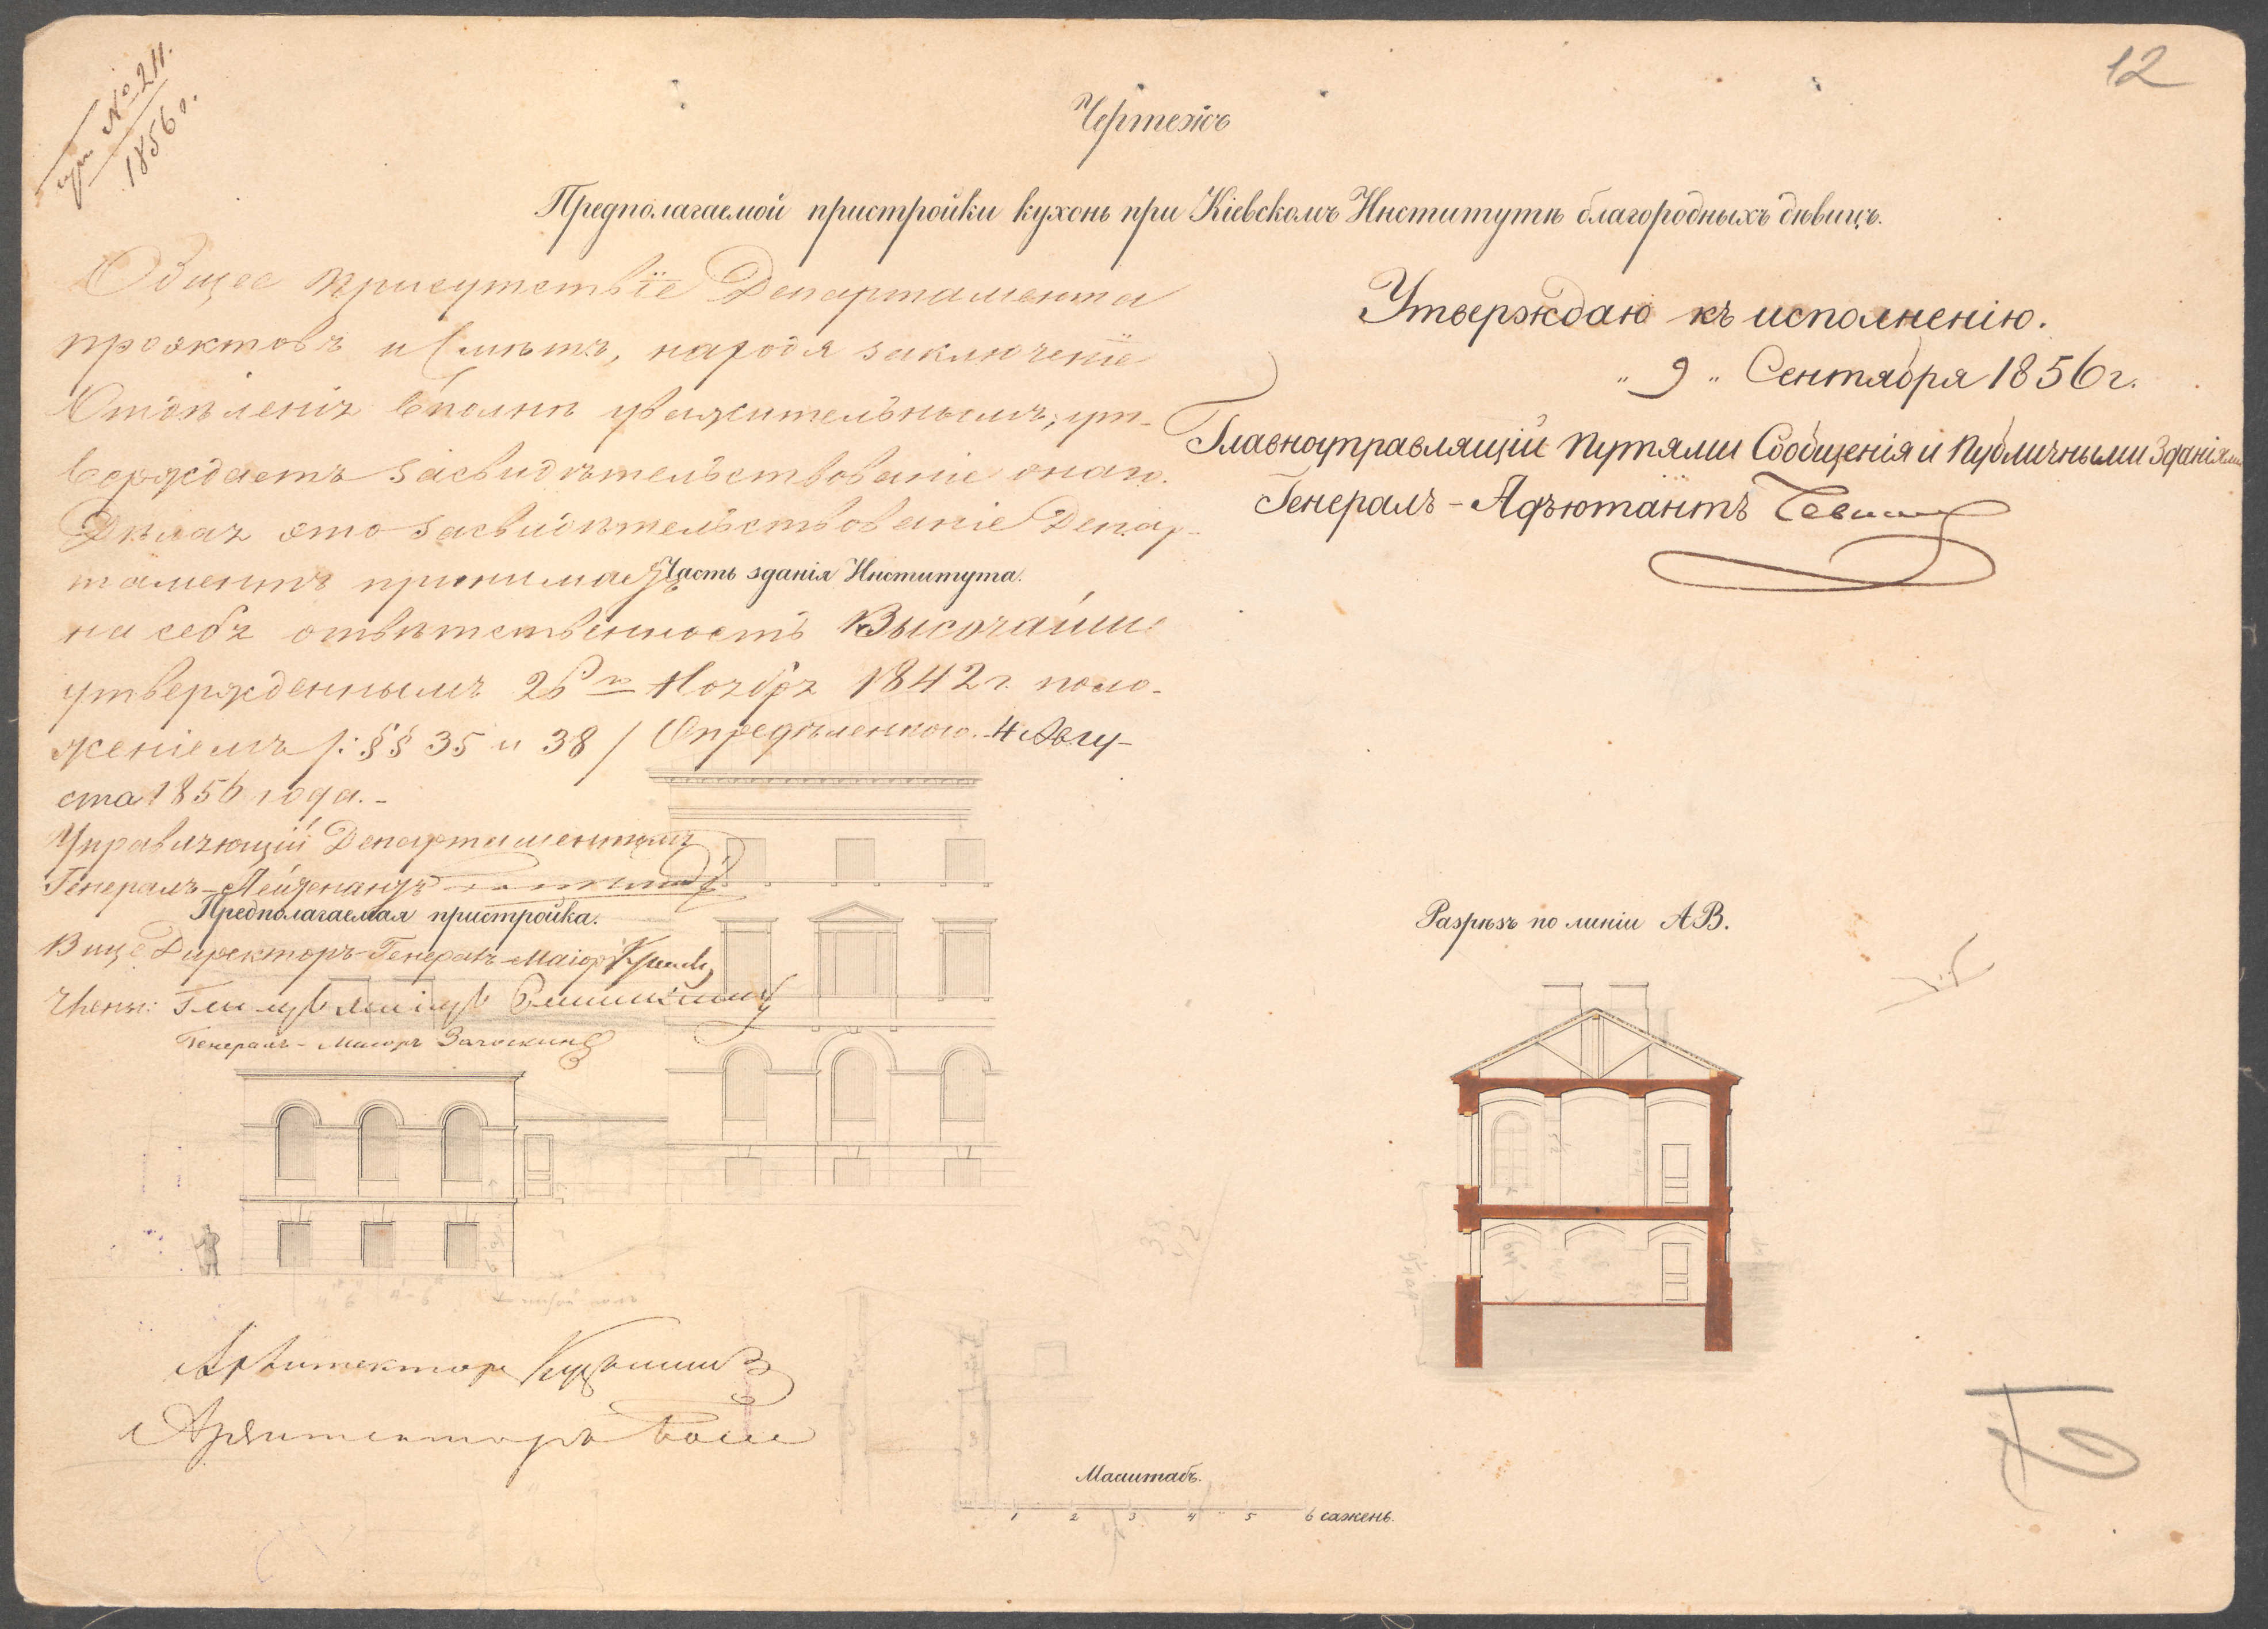 № 211.
1856 г.
12
Чертежъ
Предполагаемой пристройки кухонь при Кіевскомъ Институтѣ благородныхъ дѣвицъ.
Общее присутствіе Департамента
проэктовъ и Смѣтъ, находя заключеніе
Отдѣленія вполнѣ уважительнымъ, ут-
верждаетъ засвидѣтельствованіе онаго.
Дѣлая это засвидѣтельствованіе Депар-
таментъ принимаетъ
на себя отвѣтственность Высочайше
утвержденнымъ 26го Ноября 1842 г. поло-
женіемъ /: §§ 35 и 38 / Опредѣленною. 4 Авгу-
ста 1856 года. -
Управляющій Департаментомъ
Генералъ-Лейтенантъ
Вице Директоръ Генералъ-Маіоръ
Члены:
Генералъ-Маіоръ
Утверждаю къ исполненію.
„ 9 „ Сентября 1856 г.
Главноуправляющій Путями Сообщенія и Публичными Зданіями
Генералъ-Адъютантъ
Часть зданія Института.
Предполагаемая пристройка.
Разрѣзъ по линіи АВ.
Архитекторъ
Архитекторъ
Масштабъ.
1 2 3 4 5 6 сажень.